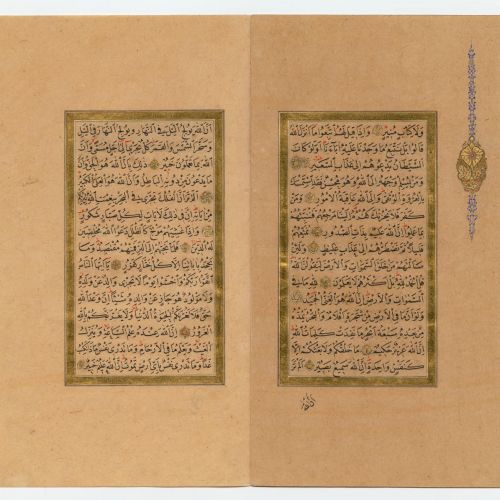 ولا كتاب منير وإذا قيل لهم اتبعوا ما أنزل الله
قالوا بل نتبع ما وجدنا عليه آباءنا أولو كان
الشيطان يدعوهم إلى عذاب السعير
ومن يسلم وجهه إلى الله وهو محسن فقد استمسك
بالعروة الوثقى وإلى الله عاقبة الأمور ومن
كفر فلا يحزنك كفره إلينا مرجعهم فننبئهم
بما عملوا إن الله عليم بذات الصدور نمتعهم
قليلا ثم نضطرهم إلى عذاب غليظ ولئن
سألتهم من خلق السموات والأرض ليقولن الله
قل الحمد لله بل أكثرهم لا يعلمون لله ما في
السموات والأرض إن الله هو الغني الحميد
ولو أنما في الأرض من شجرة أقلام والبحر يمده
من بعده سبعة أبحر ما نفدت كلمات الله
إن الله عزيز حكيم ما خلقكم ولا بعثكم إلا
كنفس واحدة إن الله سميع بصير ألم تر
أن الله
أن الله يولج الليل في النهار ويولج النهار في الليل
وسخر الشمس والقمر كل يجري إلى أجل مسمى وأن
الله بما تعملون خبير ذلك بأن الله هو الحق وأن
ما يدعون من دونه الباطل وأن الله هو العلي الكبير
ألم تر أن الفلك تجري في البحر بنعمت الله ليريكم
من آياته إن في ذلك لآيات لكل صبار شكور
وإذا غشيهم موج كالظلل دعوا الله مخلصين
له الدين فلما نجاهم إلى البر فمنهم مقتصد وما
يجحد بآياتنا إلا كل ختار كفور يا أيها الناس
اتقوا ربكم واخشوا يوما لا يجزي والد عن ولده
ولا مولود هو جاز عن والده شيئا إن وعد الله
حق فلا تغرنكم الحيوة الدنيا ولا يغرنكم بالله
الغرور إن الله عنده علم الساعة وينزل
الغيث ويعلم ما في الأرحام وما تدري نفس ماذا تكسب
غدا وما تدري نفس بأي أرض تموت إن الله عليم خبير